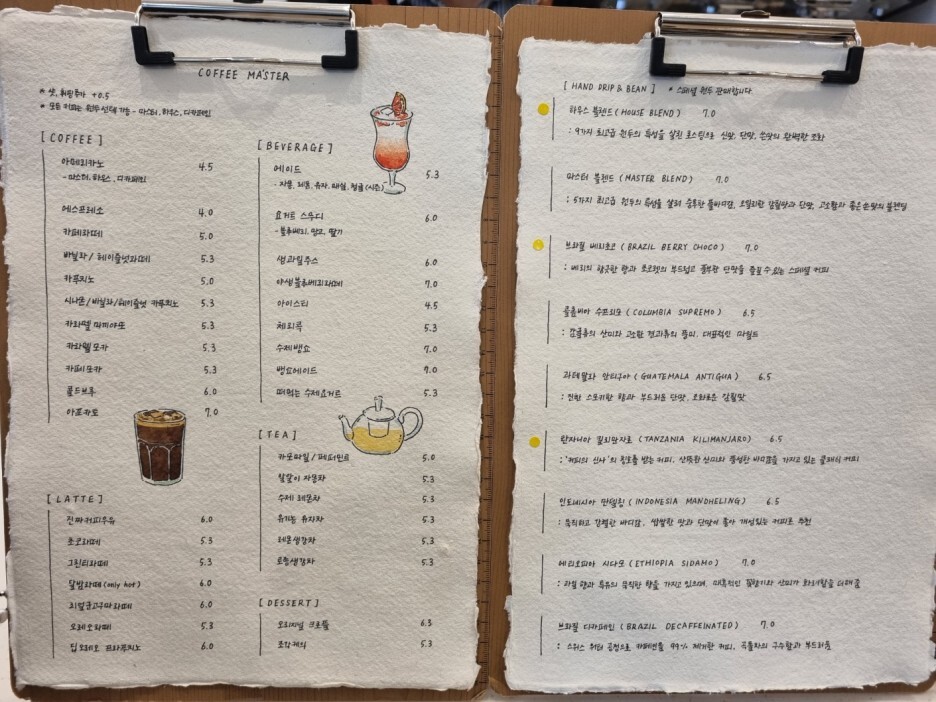 COFFEE MASTER
* 샷, 휘핑추가 +0.5
* 모든 커피는 원두선택 가능 - 마스터, 하우스, 디카페인
[ COFFEE ]
아메리카노 4.5
- 마스터, 하우스, 디카페인
에스프레소 4.0
카페라떼 5.0
바닐라 / 헤이즐넛라떼 5.3
카푸치노 5.0
시나몬/바닐라/헤이즐넛 카푸치노 5.3
카라멜 마끼아또 5.3
카라멜모카 5.3
카페모카 5.3
콜드브루 6.0
아포카토 7.0
[ LATTE ]
진짜커피우유 6.0
초코라떼 5.3
그린티라떼 5.3
달밤라떼 (only hot) 6.0
리얼군고구마라떼 6.0
오레오라떼 5.3
딥오레오 프라푸치노 6.0
[ BEVERAGE ]
에이드 5.3
- 자몽, 레몬, 유자, 매실, 청귤(시즌)
요거트 스무디 6.0
- 블루베리, 망고, 딸기
생과일주스 6.0
야생블루베리라떼 7.0
아이스티 4.5
체리콕 5.3
수제뱅쇼 7.0
뱅쇼에이드 7.0
떠먹는 수제요거트 5.3
[ TEA ]
카모마일 / 페퍼민트 5.0
알갈이 자몽차 5.3
수제 레몬차 5.3
유기농 유자차 5.3
레몬생강차 5.3
토종생강차 5.3
[ DESSERT ]
오리지널 크로플 6.3
조각케익 5.3
[ HAND DRIP & BEAN ] * 스페셜 원두 판매합니다.
하우스 블렌드 (HOUSE BLEND) 7.0
: 9가지 최고급 원두의 특성을 살린 로스팅으로 신맛, 단맛, 쓴맛의 완벽한 조화
마스터 블렌드 (MASTER BLEND) 7.0
: 5가지 최고급 원두의 특성을 살려 순수한 풀바디감, 오일리한 감칠맛과 단맛, 고소함과 좋은쓴맛의 블렌딩
브라질 베리초코 (BRAZIL BERRY CHOCO) 7.0
: 베리의 향긋한 향과 초코렛의 부드럽고 풍부한 단맛을 즐길 수 있는 스페셜 커피
콜롬비아 수프리모 (COLUMBIA SUPREMO) 6.5
: 감귤류의 산미와 고소한 견과류의 풍미, 대표적인 마일드
과테말라 안티구아 (GUATEMALA ANTIGUA) 6.5
: 진한 스모키한 향과 부드러운 단맛, 조화로운 감칠맛
탄자니아 킬리만자로 (TANZANIA KILIMANJARO) 6.5
: '커피의 신사'의 칭호를 받는 커피, 산뜻한 산미와 풍성한 바디감을 가지고 있는 클래식 커피
인도네시아 만델링 (INDONESIA MANDHELING) 6.5
: 묵직하고 강렬한 바디감, 쌉쌀한 맛과 단맛이 돌아 개성있는 커피로 추천
에티오피아 시다모 (ETHIOPIA SIDAMO) 7.0
: 과일 향과 특유의 묵직한 향을 가지고 있으며, 매혹적인 꽃향기와 산미가 화려함을 더해줌
브라질 디카페인 (BRAZIL DECAFFEINATED) 7.0
: 스위스 워터 공정으로 카페인을 99% 제거한 커피, 곡물차의 구수함과 부드러움